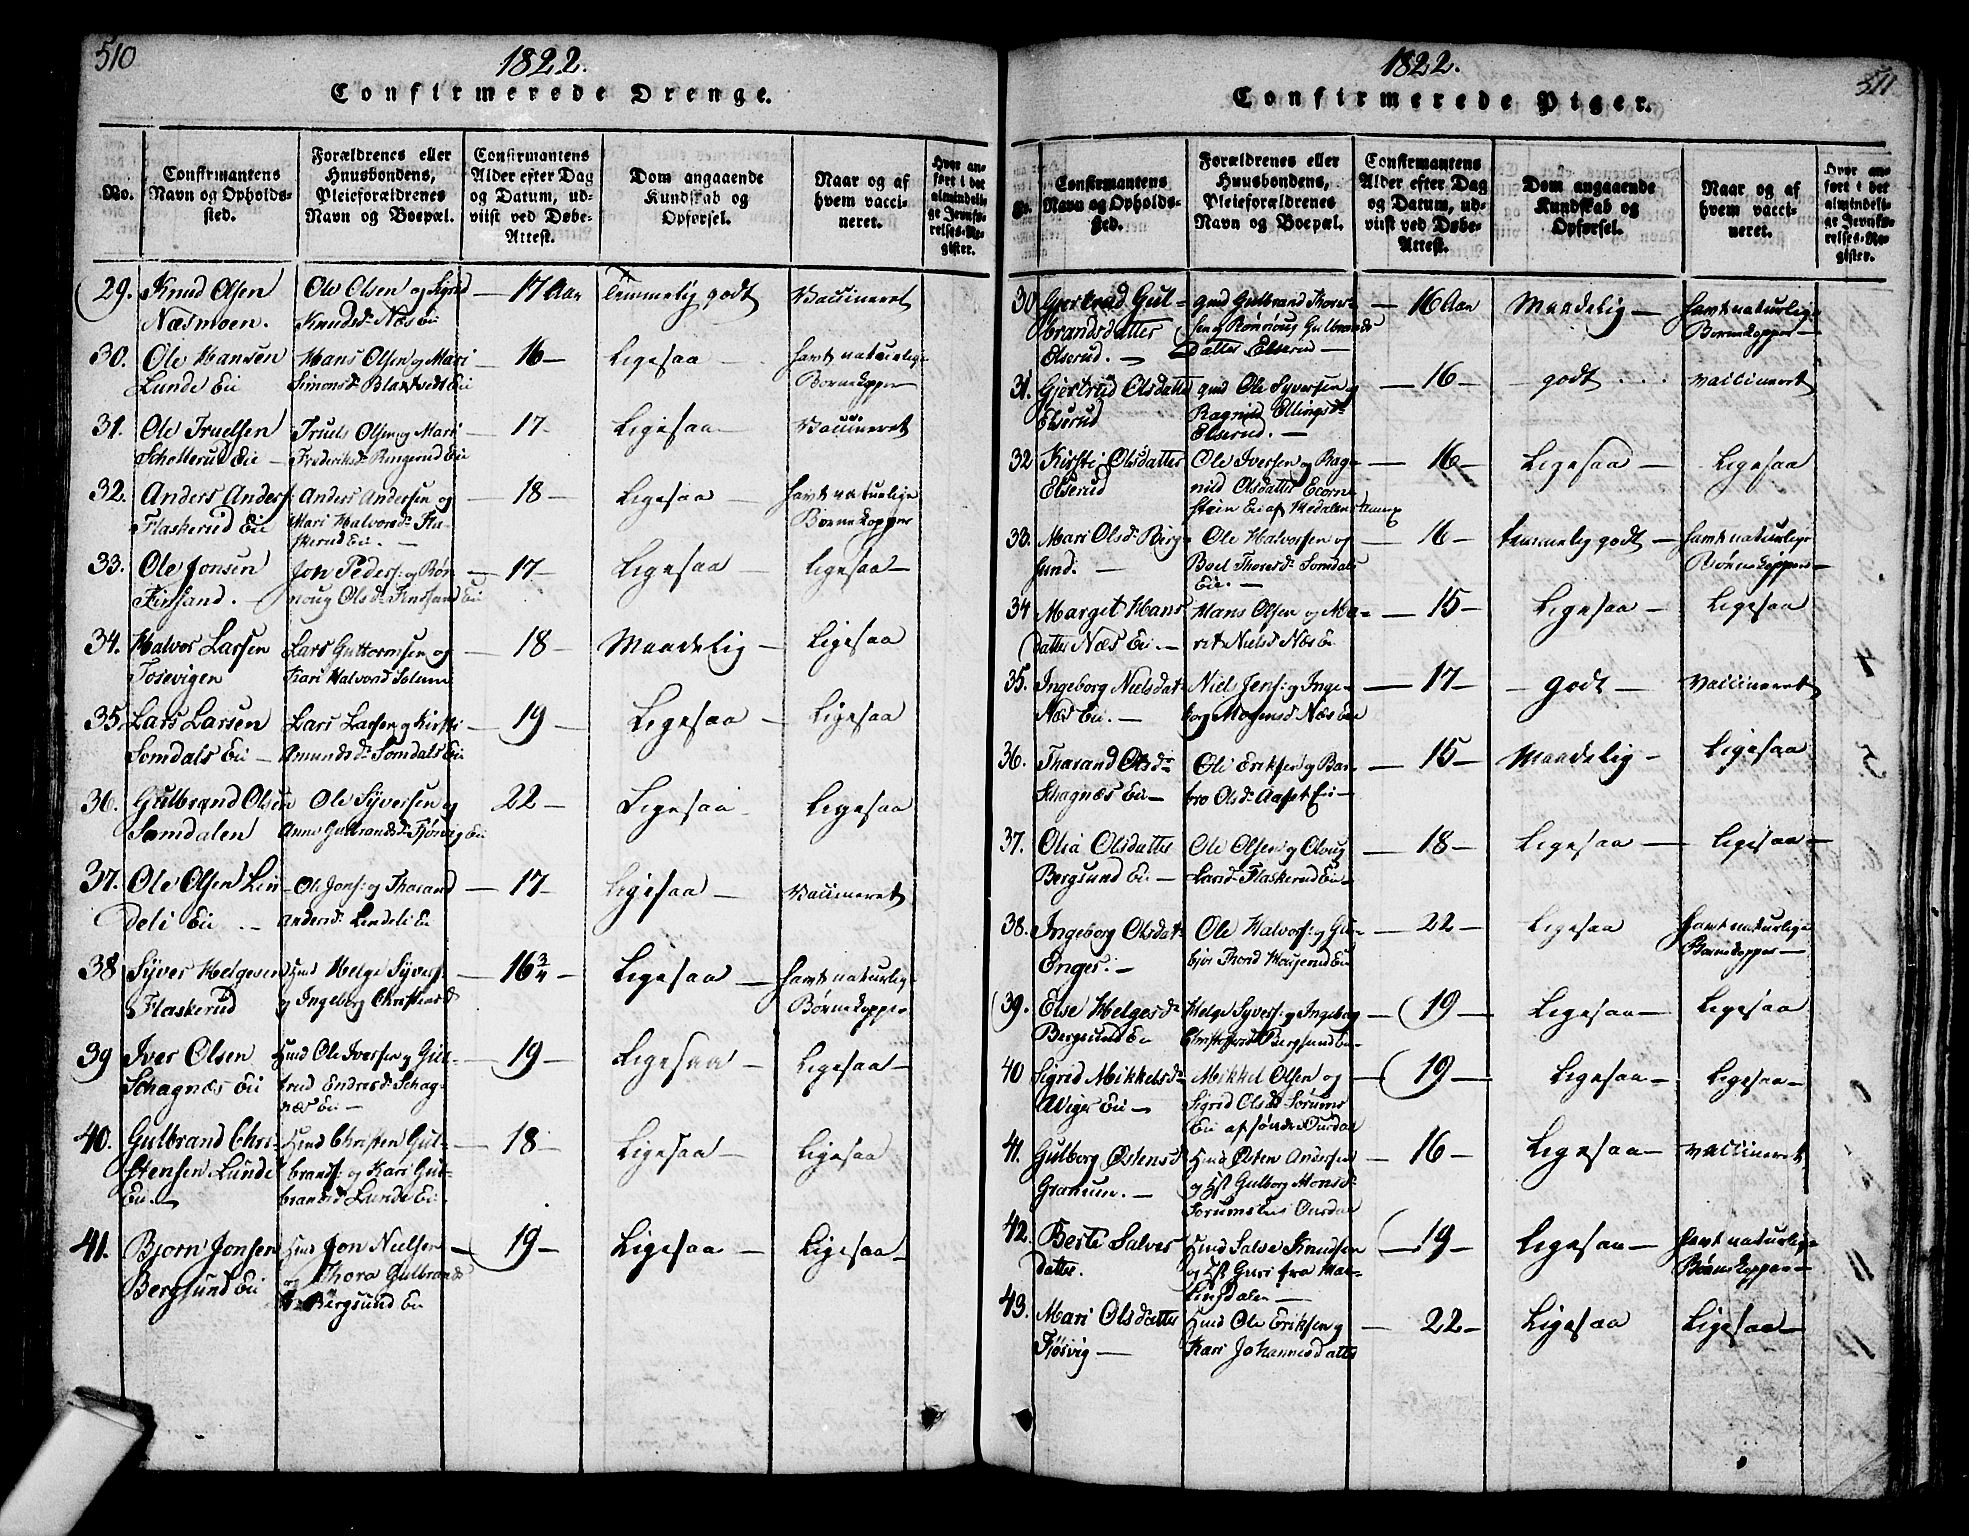 510
1822.
Confirmerede Drenge.
No.
Confirmantens
Navn og Opholds-
sted.
Forældrenes eller
Huusbondens,
Pleieforældrenes
Navn og Boepæl.
Confirmantens
Alder efter Dag
og Datum, ud-
viist ved Døbe-
Attest.
Dom angaaende
Kundskab og
Opførsel.
Naar og af
hvem vacci-
neret.
Hvor an-
ført i det
almindeli-
ge Jevnfø-
relses-Re-
gister.
29. Knud Olsen
Næsmoen.
Ole Olsen og Sigrid
Knudsd. Næs Eie
17 Aar
Temmelig godt
Vaccineret
30. Ole Hansen
Lunde Eie
Hans Olsen og Mari
Simonsd.
16
Ligesaa
havt naturlige
Børnekopper
31. Ole Truelsen
Eie
Truls Olsen og Mari
Frederiksd. Ringerud Eie
17
Ligesaa
Vaccineret
32. Anders Anders:
Flaskerud Eie
Anders Andersen og
Mari Halvorsd. Fla-
skerud Eie.
18
Ligesaa
havt naturlige
Børnekopper
33. Ole Jonsen
Finsand.
Jon Peders: og Røn
noug Olsd. Eie
17
Ligesaa
Ligesaa
34. Halvor Larsen
Tosevigen
Lars Guttormsen og
Kari Halvorsd
18
Maadelig
Ligesaa
35. Lars Larsen
Somdals Eie
Lars Larsen og Kirsti
Amundsd. Somdals Eie
19
Ligesaa
Ligesaa
36. Gulbrand Olsen
Somdalen
Ole Syversen og
Anne Gulbrandsd. Eie
22
Ligesaa
Ligesaa
37. Ole Olsen Lin
deli Eie
Ole Jons: og Thorand
Andersd. Lindeli Eie
17
Ligesaa
Vaccineret
38 Syver Helgesen
Flaskerud
Helge Syvers:
og Ingeborg
16 3/4
Ligesaa
havt naturlige
Børnekopper
39 Iver Olsen
Schagnæs Eie
Ole Iversen og
Endresd. Schag-
næs Eie
19
Ligesaa
Ligesaa
40. Gulbrand Chri-
stensen Lunde
Eie.
Christen Gul-
brands. og Kari Gul-
brandsd Lunde Eie
18
Ligesaa
Ligesaa
41. Bjørn Jonsen
Bergsund Eie
Jon Nielsen
og Thora Gulbrands
Bergsund Eie
19
Ligesaa
Ligesaa
511
1822.
Confirmerede Piger.
No.
Confirmantens
Navn og Opholds-
sted.
Forældrenes eller
Huusbondens,
Pleieforældrenes
Navn og Boepæl.
Confirmantens
Alder efter Dag
og Datum, ud-
viist ved Døbe-
Attest.
Dom angaaende
Kundskab og
Opførsel.
Naar og af
hvem vacci-
neret.
Hvor an-
ført i det
almindeli-
ge Jevnfø-
relses-Re-
gister.
30 Gjertrud Gul-
brandsdatter
Elserud.
Gulbrand Thores-
sen og Rønnoug Gulbrands
Datter Elserud
16 Aar
Maadelig
havt naturlige
Børnekopper
31. Gjertrud Olsdatter
Elserud
Ole Syversen og
Ragnild Ellingsd.
Elserud.
16
godt
Vaccineret
32 Kirsti Olsdatter
Elserud
Ole Iversen og Rag-
nild Olsdatter
Eie af Hedalen
16
Ligesaa
Ligesaa
33. Mari Olsd. Berg-
sund.
Ole Halvorsen og
Boel Thoresd. Somdals
Eie.
16
temmelig godt
havt naturlige
Børnekopper
34 Margit Hans
datter Næs Eie
Hans Olsen og Ma-
rit Nielsd Næs Eie
15
Ligesaa
Ligesaa
35. Ingeborg Nielsdat:
Næs Eie.
Niels Jens: og Inge-
borg Mogensd. Næs Eie
17
godt
Vaccineret
36. Thorand Olsd.
Schagnæs Eie
Ole Eriksen og Bar-
bro Olsd. Eie
15
Maadelig
Ligesaa
37. Olia Olsdatter
Bergsund Eie
Ole Olsen og Oloug
Larsd. Flaskerud Eie
18
Ligesaa
Ligesaa
38. Ingeborg Olsdat:
Enger.
Ole Halvors: og Gu-
bjør Eie
22
Ligesaa
havt naturlige
Børnekopper
39. Else Helgesd.
Bergsund Eie
Helge Syvers: og Ingeborg
Bergsund Eie
19
Ligesaa
Ligesaa
40 Sigrid Mikkelsd.
Eie
Mikkel Olsen og
Sigrid Olsd. Sorums
Eie af søndre Ourdal
19
Ligesaa
Ligesaa
41. Gulborg Østensd
Granum.
Østen Andersen
og Gulborg Monsd.
Ourdal
16
Ligesaa
Vaccineret
42. Berte Salves
datter.
Salve Knudsen
og Guri fra
19
Ligesaa
havt naturlige
Børnekopper
43. Mari Olsdatter
Fjøsvig
Ole Eriksen og
Kari Johannesdatter
22
Ligesaa
Ligesaa